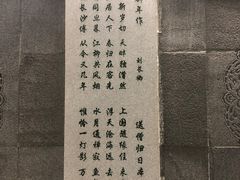 新年作
刘长卿
新岁切 天畔独潸然
居人下 春归在客先
同旦暮 江柳共风烟
长沙傅 从今又几年
送僧归日本
上国随缘住 来
浮天沧海远 去
水月通禅寂 鱼
惟怜一灯影 万